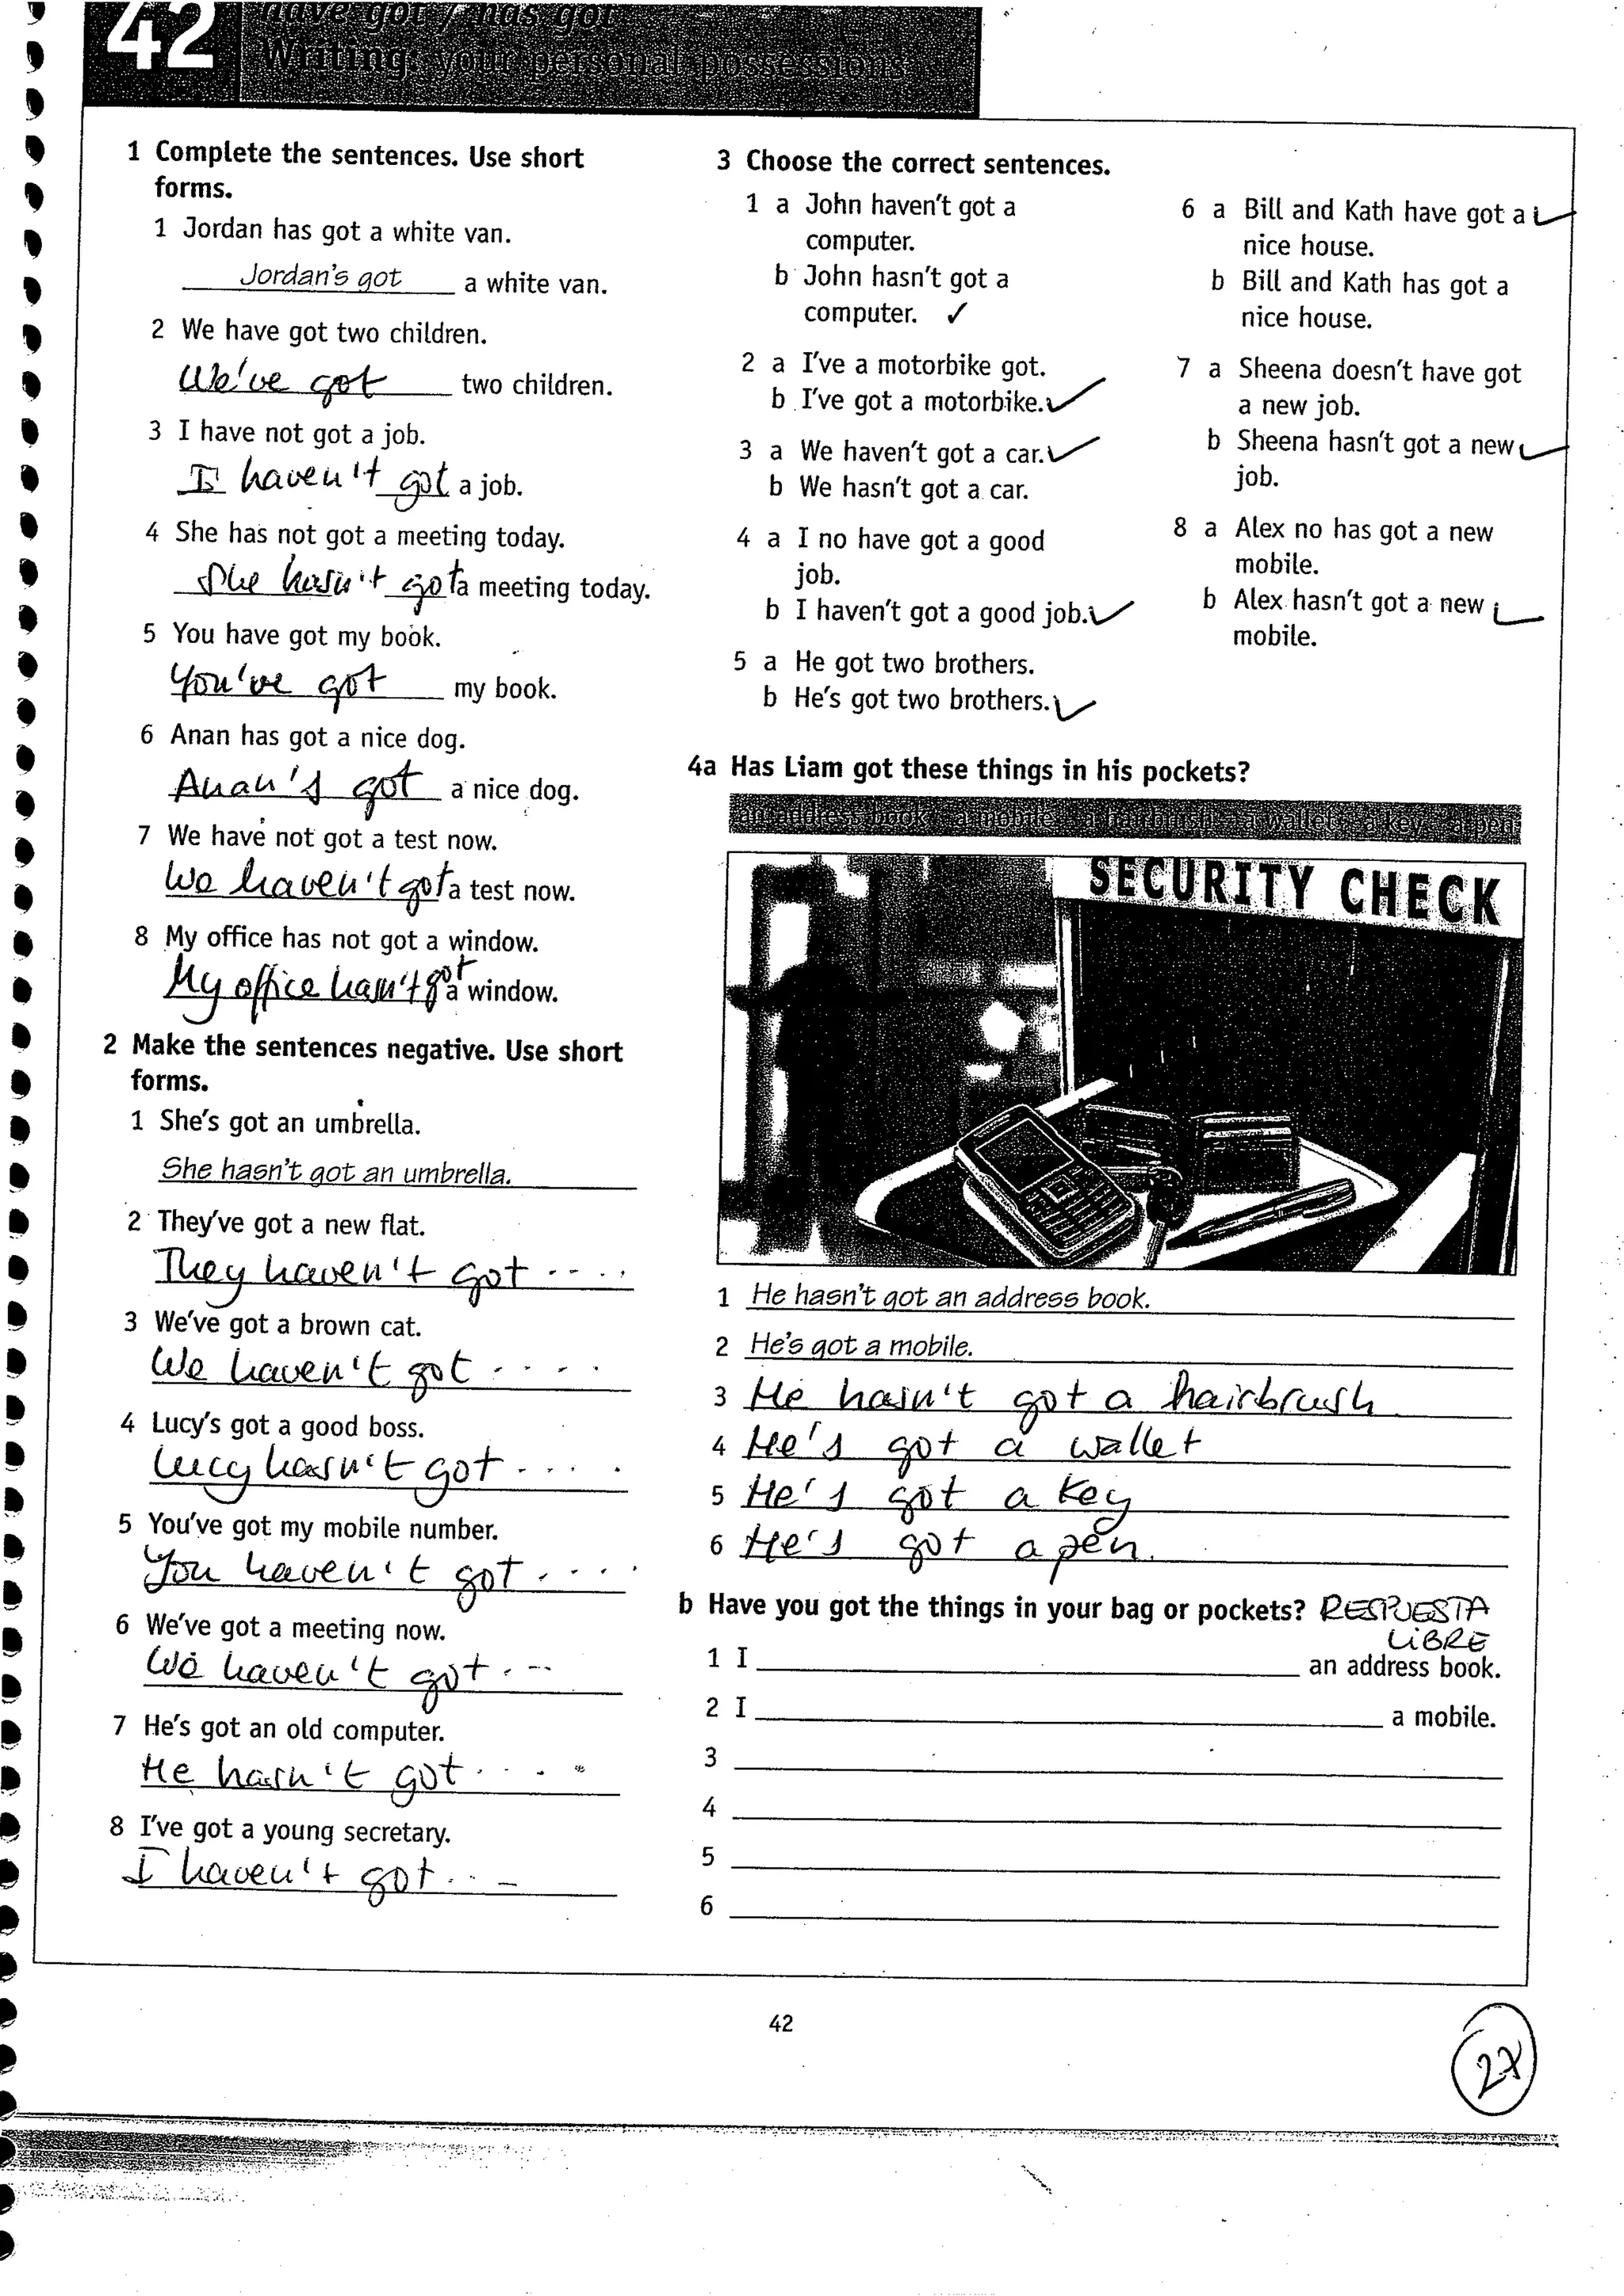 42
have got / has got
Writing: your personal possessions
1 Complete the sentences. Use short
forms.
1 Jordan has got a white van.
Jordan's got a white van.
2 We have got two children.
We've got two children.
3 I have not got a job.
I haven't got a job.
4 She has not got a meeting today.
She hasn't got a meeting today.
5 You have got my book.
You've got my book.
6 Anan has got a nice dog.
Anan's got a nice dog.
7 We have not got a test now.
We haven't got a test now.
8 My office has not got a window.
My office hasn't got a window.
2 Make the sentences negative. Use short
forms.
1 She's got an umbrella.
She hasn't got an umbrella.
2 They've got a new flat.
They haven't got ....
3 We've got a brown cat.
We haven't got ....
4 Lucy's got a good boss.
Lucy hasn't got ....
5 You've got my mobile number.
You haven't got ....
6 We've got a meeting now.
We haven't got ...
7 He's got an old computer.
He hasn't got ....
8 I've got a young secretary.
I haven't got ...
3 Choose the correct sentences.
1 a John haven't got a
computer.
b John hasn't got a
computer. ✓
2 a I've a motorbike got.
b I've got a motorbike. ✓
3 a We haven't got a car. ✓
b We hasn't got a car.
4 a I no have got a good
job.
b I haven't got a good job. ✓
5 a He got two brothers.
b He's got two brothers. ✓
6 a Bill and Kath have got a ✓
nice house.
b Bill and Kath has got a
nice house.
7 a Sheena doesn't have got
a new job.
b Sheena hasn't got a new ✓
job.
8 a Alex no has got a new
mobile.
b Alex hasn't got a new ✓
mobile.
4a Has Liam got these things in his pockets?
an address book a mobile a hairbrush a wallet a key a pen
SECURITY CHECK
1 He hasn't got an address book.
2 He's got a mobile.
3 He hasn't got a hairbrush
4 He's got a wallet
5 He's got a key
6 He's got a pen.
b Have you got the things in your bag or pockets? RESPUESTA
LIBRE
1 I an address book.
2 I a mobile.
3
4
5
6
42
27